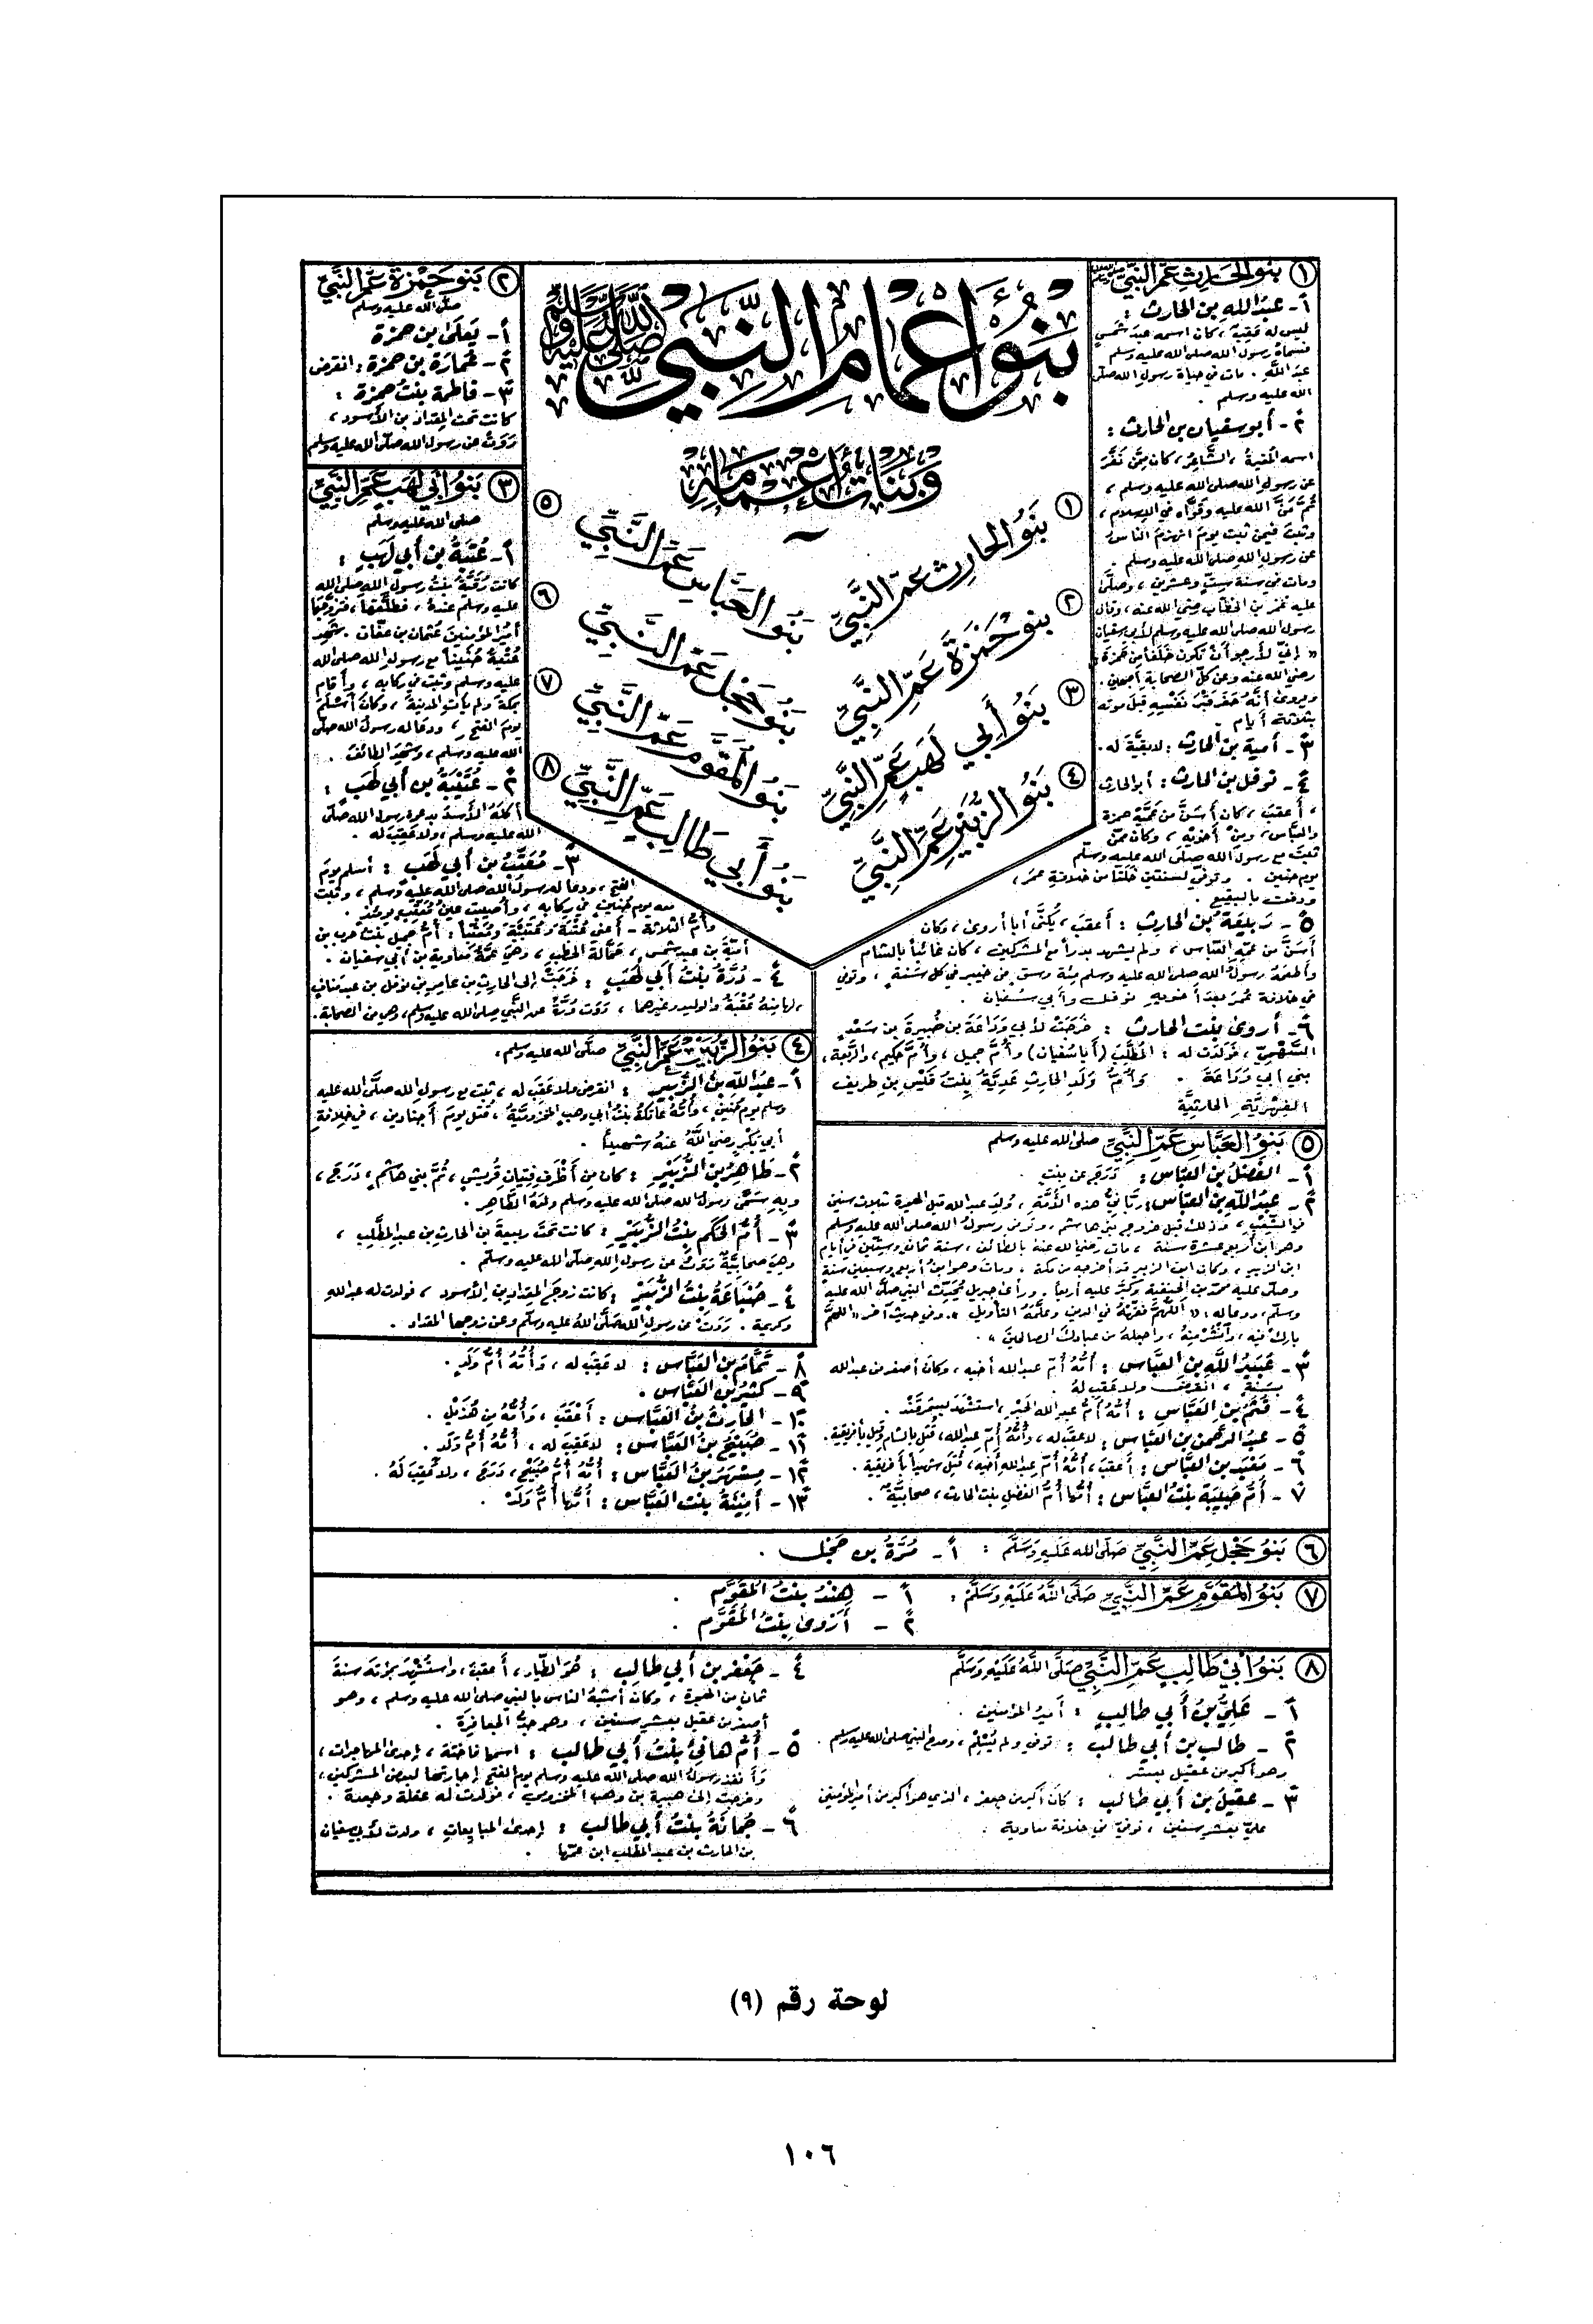 بَنُو أَعْمَامِ النَّبِيِّ صلى الله عليه وسلم
وَبَنَاتُ أَعْمَامِهِ
١ بَنُو الحارِثِ عَمِّ النَّبِيِّ
٢ بنو حَمْزَةَ عَمِّ النَّبِيِّ
٣ بَنُو أَبِي لَهَبٍ عَمِّ النَّبِيِّ
٤ بَنُو الزُّبَيْرِ عَمِّ النَّبِيِّ
٥ بَنُو العَبَّاسِ عَمِّ النَّبِيِّ
٦ بَنُو حَجْلٍ عَمِّ النَّبِيِّ
٧ بَنُو المُقَوَّمِ عَمِّ النَّبِيِّ
٨ بَنُو أَبِي طَالِبٍ عَمِّ النَّبِيِّ
١ بَنُو الحَارِثِ عَمِّ النَّبِيِّ
١ - عبد الله بن الحارث :
ليس له عَقِبٌ ، كان اسمه عبد شَمْسٍ
فسماه رسول الله صلى الله عليه وسلم
عبد الله . مات في حياة رسول الله صلى
الله عليه وسلم .
٢ - أبو سفيان بن الحارث :
اسمه المغيرة ، الشَّاعر ، كان مِمَّن نَفَرَ
عن رسول الله صلى الله عليه وسلم ،
ثُمَّ مَنَّ الله عليه وقوَّاه في الإسلام ،
وثبت فيمن ثبت يوم انهزم الناس
عن رسول الله صلى الله عليه وسلم .
ومات في سنة سِتٍّ وعشرين ، وصلَّى
عليه عمر بن الخطّاب رضي الله عنه ، وقال
رسول الله صلى الله عليه وسلم لأبي سفيان
« إنّي لأرجو أن تكون خَلَفاً من حمزة »
رضي الله عنه وعن كلّ الصحابة أجمعين .
ويروى أنَّهُ حَفَرَ قَبْرَ نَفْسِهِ قبل موته
بثلاثة أيام .
٣ - أمية بن الحارث : لا بقيَّة له .
٤ - نوفل بن الحارث : أبو الحارث
، أعقب ، كان أسَنَّ من عَمَّيْهِ حمزة
والعبّاس ، ومِنْ أخوته ، وكان ممّن
ثبت مع رسول الله صلى الله عليه وسلم
يوم حنين . وتوفي لسنتين خَلَتَا من خلافة عمر ،
ودفن بالبقيع .
٥ - رَبِيعَة بن الحارث : أعقب ، يُكنّى أبا أروى ، وكان
أسَنَّ من عمّه العبّاس ، ولم يشهد بدراً مع المشركين ، كان غائباً بالشام
وأطعمهُ رسول الله صلى الله عليه وسلم مئة وسق من خيبر في كل سَنَةٍ ، وتوفي
في خلافة عمر بعد أخويه نوفل وأبي سُفيان .
٦ - أروى بنت الحارث : خَرَجَتْ لأبي وَدَاعَة بن ضُبيرة بن سَعْدٍ
السَّهْمِيّ ، فَوَلَدَتْ له : المُطَّلِبَ (أبا سُفيان) وأُمَّ جميل ، وأُمَّ حكيم ، والرَّبعة ،
بني أبي وَدَاعَة . وأُمُّ وَلَدِ الحارث عَدِيَّةُ بِنْتُ قَيْسِ بن طريف
الفِهْرِيَّةِ الحارثيَّة
٢ بَنُو حَمْزَةَ عَمِّ النَّبِيِّ
صلى الله عليه وسلم
١ - يَعلى بن حمزة
٢ - عُمارَة بن حمزة : انقرض
٣ - فاطمة بنتُ حمزة :
كانت تحت المِقداد بن الأَسود ،
رَوَتْ عن رسول الله صلى الله عليه وسلم
٣ بَنُو أَبِي لَهَبٍ عَمِّ النَّبِيِّ
صلى الله عليه وسلم
١ - عُتْبَةُ بن أبي لَهَبٍ :
كانت رُقَيَّةُ بنتُ رسول الله صلى الله
عليه وسلم عندهُ ، فطلَّقها ، فتزوَّجها
أميرُ المؤمنين عُثمان بن عفّان . شهِدَ
عُتْبَةُ حُنَيناً مع رسول الله صلى الله
عليه وسلم وثبت في ركابه ، وأقام
بمكة ولم يأتِ المدينة ، وكان أسْلَمَ
يوم الفتح ، ودعا له رسول الله صلى
الله عليه وسلم ، وشهِدَ الطائف .
٢ - عُتَيْبَةُ بن أبي لَهَب :
أكَلَهُ الأسدُ بدعوة رسول الله صلى
الله عليه وسلم ، ولا عَقِبَ له .
٣ - مُعَتِّبُ بن أبي لَهَب : أسلم يوم
الفتح ، ودعا له رسول الله صلى الله عليه وسلم ، وثبت
معه يوم حُنين في ركابه ، وأُصيبت عينُ مُعَتِّبٍ يومئذ .
وأُمُّ الثلاثة - أعني عُتْبَة وعُتَيْبَة ومُعَتِّباً : أُمُّ جميل بنتُ حرب بن
أُميّة بن عبد شمس ، حمّالة الحطب ، وهي عمّة معاوية بن أبي سفيان .
٤ - دُرَّةُ بنتُ أبي لَهَب : خَرَجَتْ إلى الحارث بن عامر بن نوفل بن عبد مناف
، لها منهُ عُقْبَةُ والوليد وغيرهما ، رَوَتْ دُرَّةُ عن النَّبي صلى الله عليه وسلم ، وهي من الصحابة .
٤ بَنُو الزُّبَيْرِ عَمِّ النَّبِيِّ صلى الله عليه وسلم ،
١ - عبد الله بن الزُّبَيْر : انقرض ولا عَقِبَ له ، ثبت مع رسول الله صلَّى الله عليه
وسلم يوم حُنين ، وأُمُّهُ عاتكةُ بنتُ أبي وهبٍ المخزوميّة ، قُتل يوم أجنادين ، في خلافة
أبي بَكْرٍ رضي الله عنهُ شهيداً .
٢ - طَاهِرُ بن الزُّبَيْر : كان من أظْرَفِ فِتيان قُريش ، ثُمَّ بني هاشم ، دَرَجَ ،
وبه سَمَّى رسول الله صلى الله عليه وسلم ولدَهُ الطّاهر .
٣ - أُمُّ الحَكَم بِنْتُ الزُّبَيْر : كانت تحت ربيعة بن الحارث بن عبد المطّلب ،
وهي صحابيّةٌ رَوَتْ عن رسول الله صلى الله عليه وسلم .
٤ - ضُبَاعَةُ بِنْتُ الزُّبَيْر : كانت زوجَ المِقداد بن الأسود ، فولدت له عبد الله
وكريمة . رَوَتْ عن رسول الله صلى الله عليه وسلم وعن زوجها المقداد .
٥ بَنُو العَبَّاسِ عَمِّ النَّبِيِّ صلى الله عليه وسلم
١ - الفَضْلُ بن العبّاس : دَرَجَ عن بنتٍ .
٢ - عبدُ الله بن العبّاس : ربّانيُّ هذه الأُمَّة ، وُلِدَ عبد الله قبل الهجرة بثلاث سنين
في الشِّعْبِ ، وذلك قبل خروج بني هاشم ، وتوفي رسولُ الله صلى الله عليه وسلم
وهو ابن أربع عشرة سنة ، مات رضي الله عنه بالطائف ، سنة ثمان وستين في أيام
ابن الزبير ، وكان ابن الزبير قد أخرجه من مكة ، ومات وهو ابن أربع وسبعين سنة
وصلّى عليه محمّد بن الحنفية وكبّر عليه أربعاً . ورأى جبريل يُحدِّث النبي صلى الله عليه
وسلم ، ودعا له : « اللَّهُمَّ فَقِّهْهُ في الدين وعلِّمهُ التأويل » . وفي حديث آخر « اللهمَّ
بارك فيه ، وانْشُرْ مِنْهُ ، واجعله من عبادك الصالحين » .
٣ - عُبَيْدُ اللَّه بن العبّاس : أُمُّهُ أُمُّ عبد الله أخيه ، وكان أصغر من عبد الله
بسَنَةٍ ، انقرض ولا عَقِبَ لهُ .
٤ - قُثَمُ بن العَبّاس : أُمُّهُ أُمُّ عبد الله الحَبْرِ ، استشهد بسَمَرقَنْد .
٥ - عبدُ الرَّحمن بن العبّاس : لا عَقِبَ له ، وأُمُّهُ أُمُّ عبد الله ، قُتل بالشام وقيل بأفريقية .
٦ - مَعْبَد بن العبّاس : أعقب ، أُمُّهُ أُمُّ عبد الله أخيه ، قُتِلَ شهيداً بأفريقية .
٧ - أُمُّ حَبِيبَة بنتُ العبّاس : أُمُّها أُمُّ الفضل بنت الحارث ، صحابيَّة .
٨ - تَمَّام بن العَبَّاس : لا عَقِبَ له ، وَأُمُّهُ أُمُّ وَلَدٍ .
٩ - كَثيرُ بن العَبَّاس .
١٠ - الحارثُ بنُ العَبَّاس : أعْقَبَ ، وأُمُّهُ مِن هُذَيْل .
١١ - صُبَيْحُ بنُ العَبَّاس : لا عَقِبَ له ، أُمُّهُ أُمُّ وَلَد .
١٢ - مِسْهَرُ بنُ العَبَّاس : أُمُّهُ أُمُّ صُبَيْح ، دَرَجَ ، ولا عَقِبَ لَهُ .
١٣ - أُمَيْنَةُ بنت العَبَّاس : أُمُّها أُمُّ وَلَدْ .
٦ بَنُو حَجْلٍ عَمِّ النَّبِيِّ صَلّى الله عَلَيْهِ وَسَلَّمَ : ١ - مُرَّةُ بن حَجْل .
٧ بَنُو المُقَوَّمِ عَمِّ النَّبِيِّ صَلَّى اللَّهُ عَلَيْهِ وَسَلَّمَ : ١ - هِنْدُ بنتُ المُقَوَّم .
٢ - أَرْوى بِنْتُ المُقَوَّم .
٨ بَنُو أَبِي طَالِبٍ عَمِّ النَّبِيِّ صَلَّى اللَّهُ عَلَيْهِ وَسَلَّمَ
١ - عَلِيُّ بنُ أَبي طالِبٍ : أميرُ المؤمنين .
٢ - طالب بن أبي طالب : توفي ولم يُسْلِمْ ، ومدح النبي صلى الله عليه وسلم .
وهو أكبر من عقيل بعشر .
٣ - عقيل بن أبي طالب : كان أكبر من جعفر ، الذي هو أكبر من أمير المؤمنين
عليّ بعشر سنين ، توفيّ في خلافة معاوية .
٤ - جَعْفَر بن أبي طالب : هُوَ الطيّار ، أعقبَ ، واستُشْهِدَ بمؤتة سنةَ
ثمان من الهجرة ، وكان أشبهَ الناس بالنبي صلى الله عليه وسلم ، وهو
أصغر من عقيل بعشر سنين ، وهو جدُّ الجعافرة .
٥ - أُمُّ هانئ بنتُ أبي طالب : اسمها فاختة ، إحدى المهاجرات ،
وأنفذ رسولُ الله صلى الله عليه وسلم يوم الفتح إجارتها لبعض المشركين ،
وخرجت إلى هبيرة بن وهب المخزومي ، فولدت له عقلة وجعدة .
٦ - جُمانَةُ بنتُ أبي طالب : إحدى المبايعات ، ولدت لأبي سفيان
بن الحارث بن عبد المطّلب ابن عمّها .
لوحة رقم (٩)
١٠٦